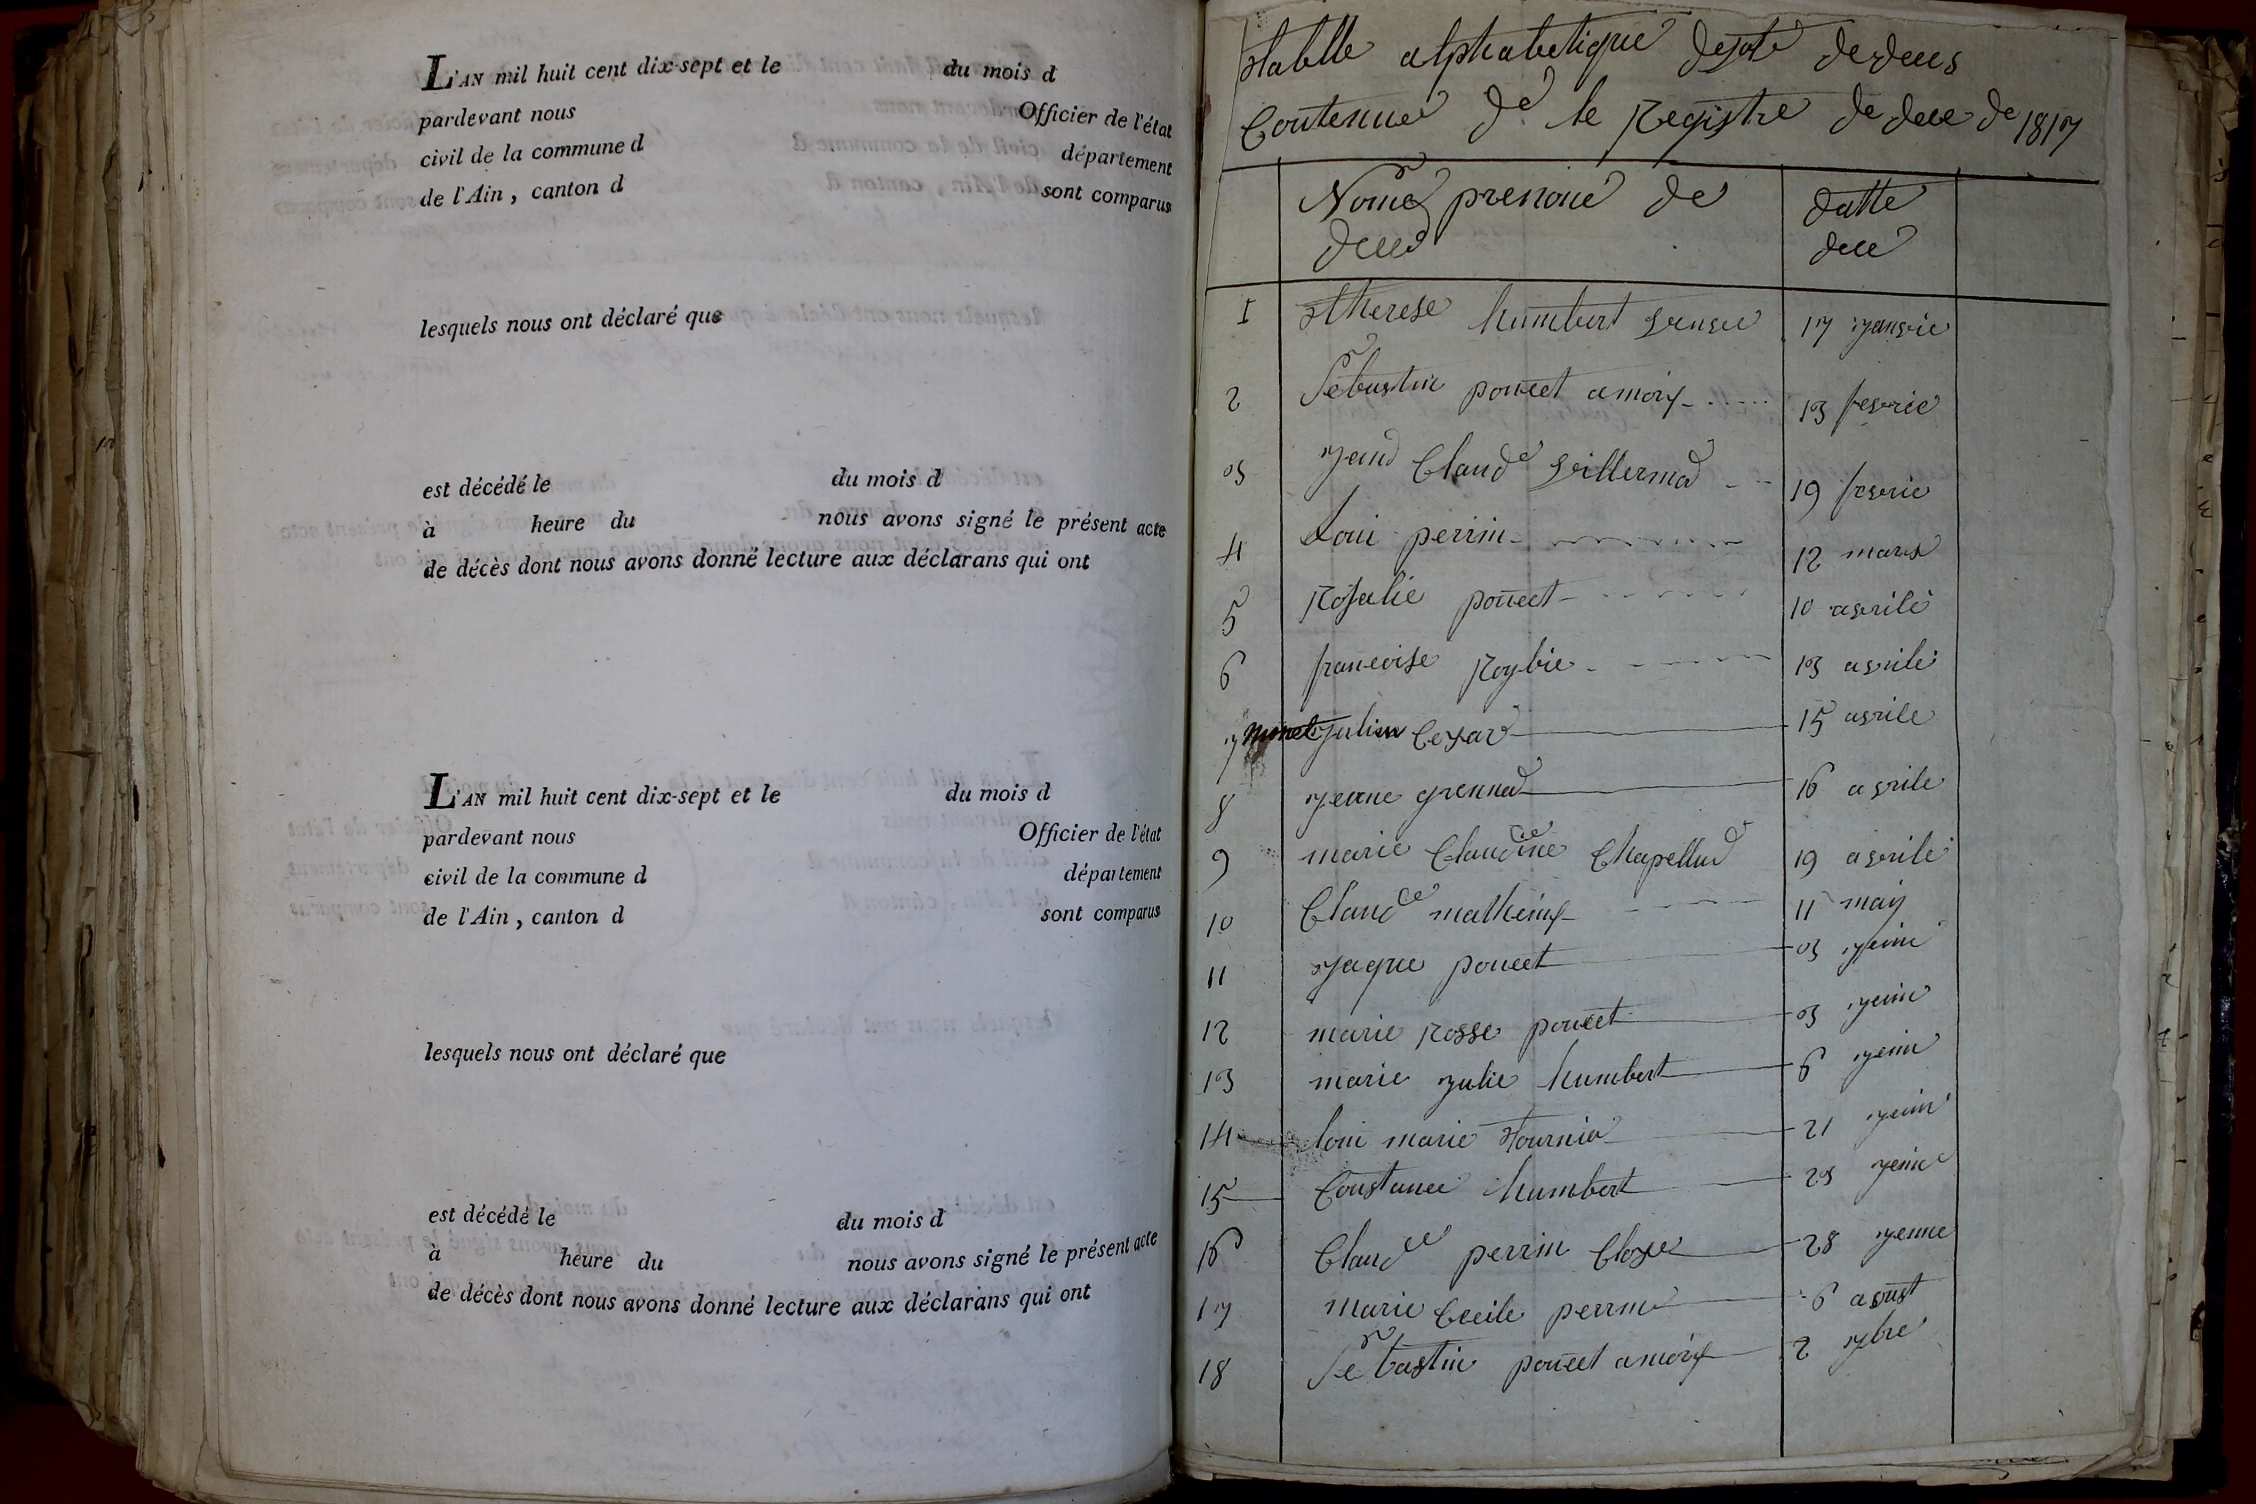 L'AN mil huit cent dix-sept et le du mois d
pardevant nous Officier de l'état
civil de la commune d département
de l'Ain, canton d sont comparus
lesquels nous ont déclaré que
est décédé le du mois d
à heure du nous avons signé le présent acte
de décès dont nous avons donné lecture aux déclarans qui ont
L'AN mil huit cent dix-sept et le du mois d
pardevant nous Officier de l'état
civil de la commune d département
de l'Ain, canton d sont comparus
lesquels nous ont déclaré que
est décédé le du mois d
à heure du nous avons signé le présent acte
de décès dont nous avons donné lecture aux déclarans qui ont
tablle alphabetique de
Contenue de le Registre de dece de 1817
Nome prenome de datte
deces dece
1 therese humbert 17 janvie
2 Sebastin poncet amory 13 fevrie
3 jean Claude villermod 19 fevrie
4 Loui perrin 12 mars
5 Rosalie poncet 10 avrile
6 francoise Roybie 13 avrile
7 monet julien Cesar 15 avrile
8 jeanne grennod 16 avrile
9 marie Claudine Chapellud 19 avrile
10 Claude mathieux 11 may
11 jaque poncet 3 jeuin
12 marie rosse poncet 3 jeuin
13 marie julie humbert 6 jeuin
14 loui marie tournie 21 jeuin
15 Constance humbert 23 jeuin
16 Claude perrin 28
17 marie Cecile perrin 6 avust
18 Sebastin poncet amory 2 7bre